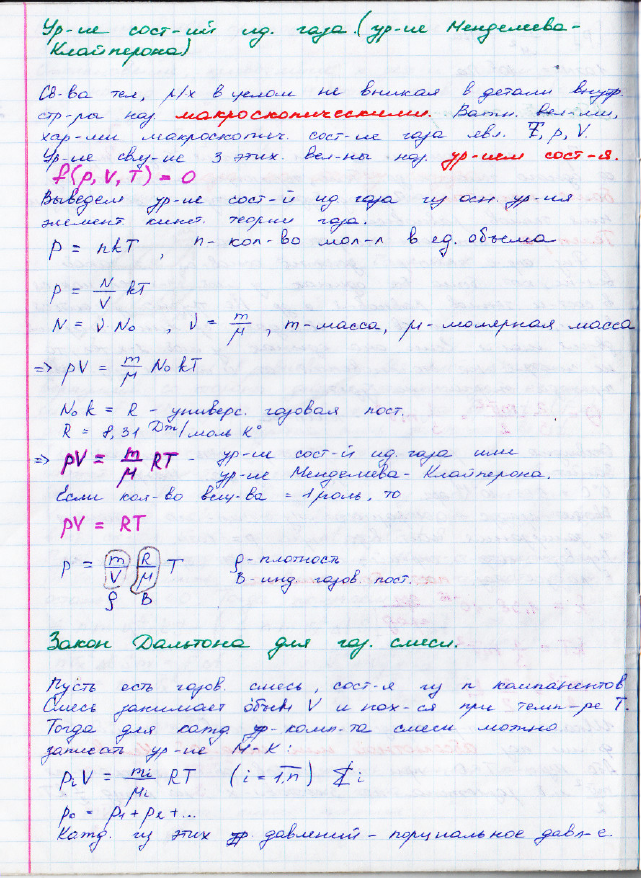 Ур-ие сост-ий ид. газа. (ур-ие Менделеева-
Клайперона)
Св-ва тел, р/х в целом не вникая в детали внутр.
стр-ры наз. макроскопическими. Важн. вел-ми,
хар-ми макроскопич. сост-ие газа явл. T, p, V.
Ур-ие связ-ие 3 этих. вел-ны наз. ур-ием сост-я.
f(p, V, T) = 0
Выведем ур-ие сост-й ид газа из осн. ур-ия
элемент кинет. теории газа.
p = nkT , n - кол-во мол-л в ед. объема
p = N/V kT
N = ν N₀ , ν = m/μ , m-масса, μ-молярная масса
=> pV = m/μ N₀ kT
N₀ k = R - универс. газовая пост.
R = 8,31 Дж/моль К°
=> pV = m/μ RT - ур-ие сост-й ид. газа или
ур-ие Менделеева-Клайперона.
Если кол-во вещ-ва = 1 моль, то
pV = RT
p = m/V R/μ T ρ - плотность
ρ B B - инд. газов. пост.
Закон Дальтона для газ. смеси.
Пусть есть газов. смесь, сост-я из n компанентов
Смесь занимает объем V и нах-ся при темп-ре T.
Тогда для кажд комп-та смеси можно
записать ур-ие М-К:
pᵢV = mᵢ/μᵢ RT (i = 1,n) Σ i
p₀ = p₁ + p₂ + ...
Кажд. из этих давлений - парциальное давл-е.